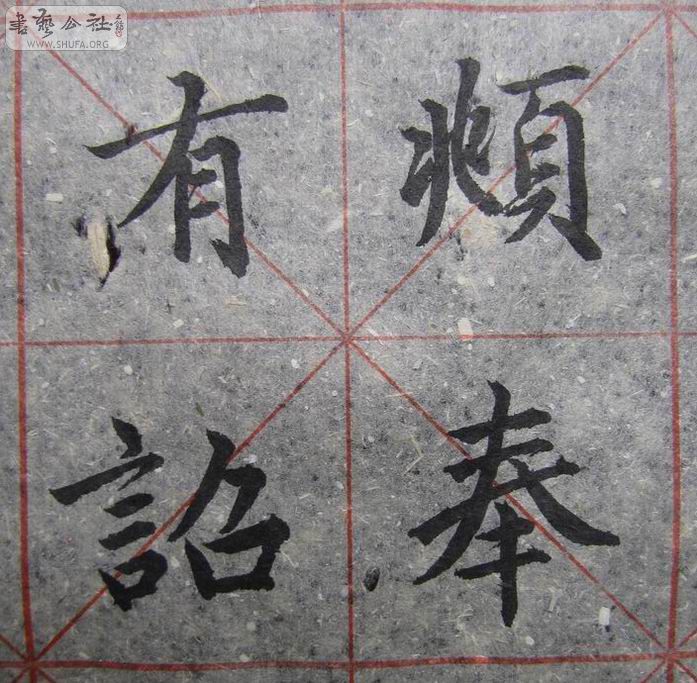 書藝公社
WWW.SHUFA.ORG
頫奉
有詔